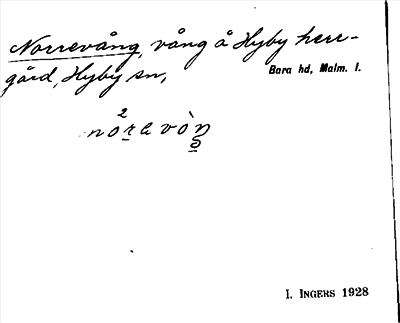 Norrevång, vång å Hyby herr-
gård, Hyby sn,
Bara hd, Malm. l.
I. INGERS 1928